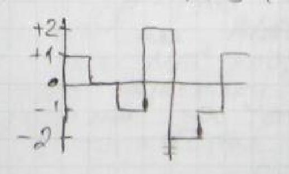 +2
+1
0
-1
-2